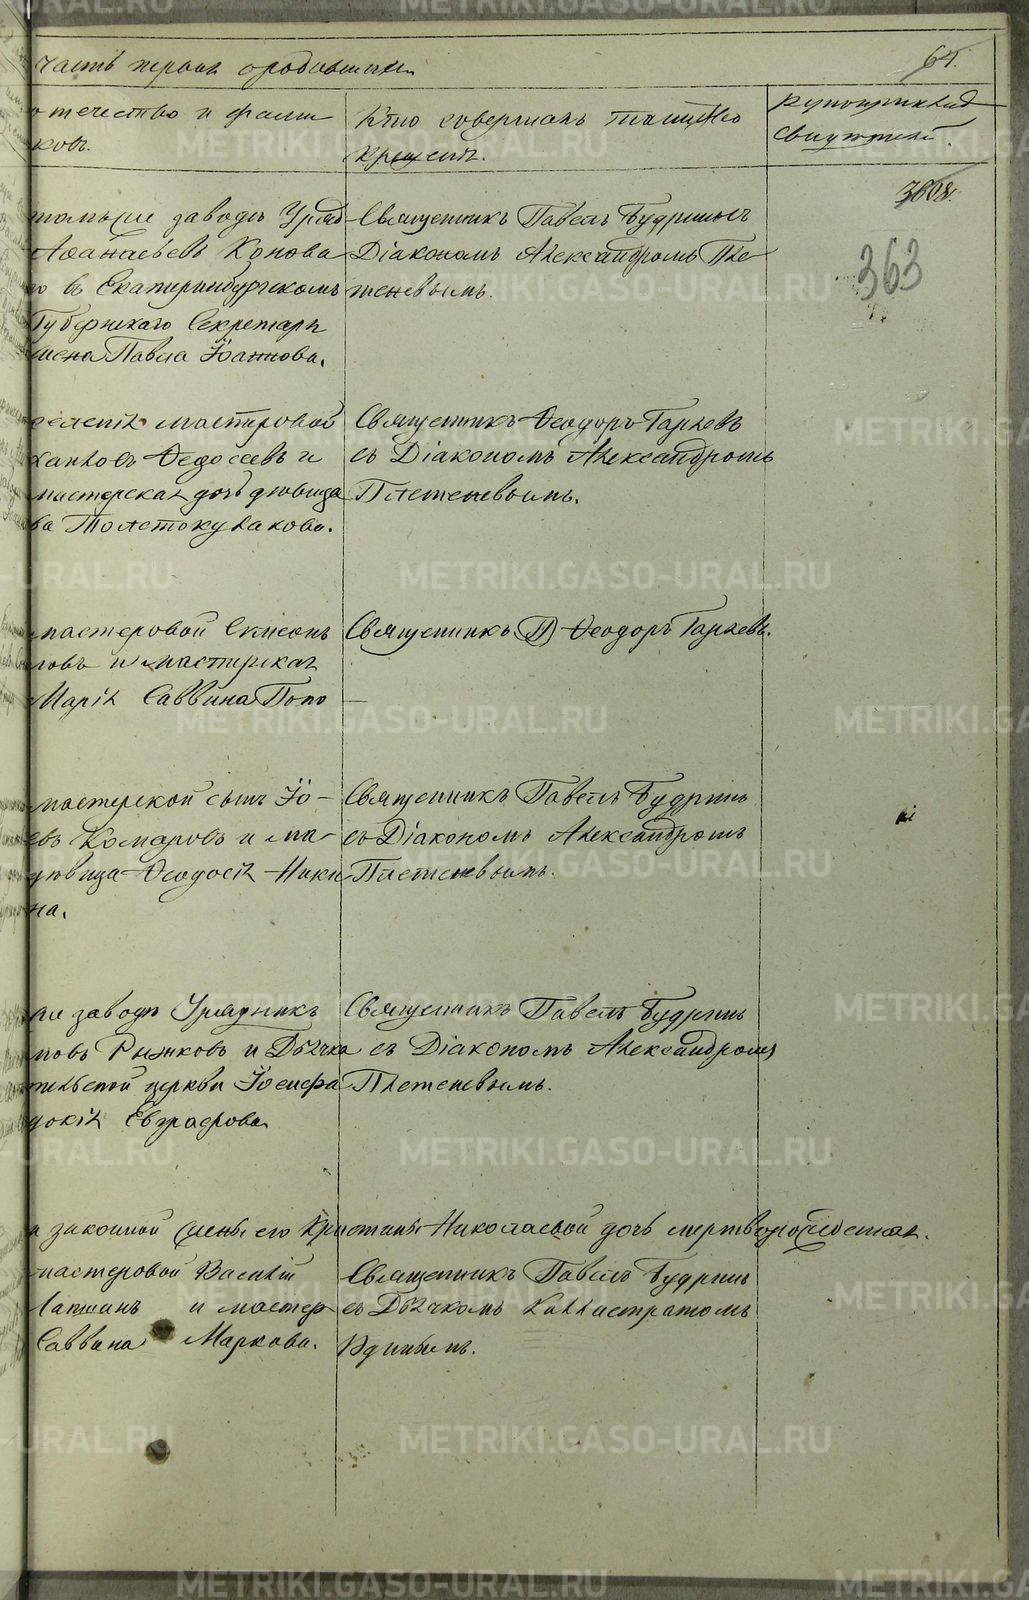 часть первая о родившихся. 64.
отечество и фами
ковъ.
Кто совершалъ таинство
крещенія.
рукоприклад
свидѣтелей.
3608.
363
тальше завода Уряд
Аѳанасьевъ Конова
въ Екатеринбургскомъ
Губернскаго Секретаря
жена Павла Іоаннова.
Священникъ Павелъ Будринъ съ
Діакономъ Александромъ Пле
теневымъ.
мастеровой
Ѳедосеевъ и
мастерская дочь дѣвица
ва Толстокулакова.
Священникъ Ѳеодоръ Гаряевъ
съ Діакономъ Александромъ
Плетеневымъ.
мастеровой Симеонъ
ловъ и мастерская
Марія Саввина Попо
Священникъ Ѳеодоръ Гаряевъ.
мастерской сынъ Іо-
евъ Комаровъ и ма-
дѣвица Ѳеодосія Ники
на.
Священникъ Павелъ Будринъ
съ Діакономъ Александромъ
Плетеневымъ.
завода Урядникъ
повъ Рыжковъ и Дьячка
тельской церкви Іосифа
докія Евграфова
Священникъ Павелъ Будринъ
съ Діакономъ Александромъ
Плетеневымъ.
и законной жены его Кристины Николаевой дочь мертворожденная.
мастеровой Василій
Лапшинъ и мастер
Саввина Маркова.
Священникъ Павелъ Будринъ
съ Дьячкомъ Каллистратомъ
Удинымъ.
METRIKI.GASO-URAL.RU